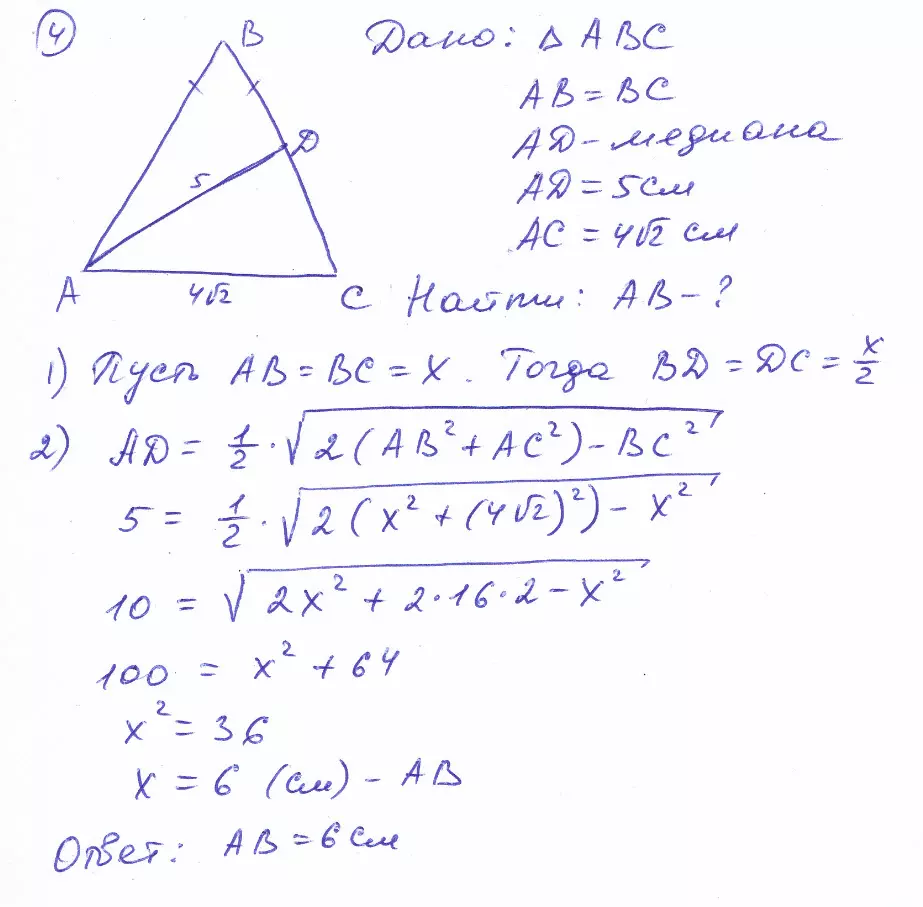 4
B
Дано: △ ABC
AB = BC
D
AD - медиана
5
AD = 5 см
AC = 4√2 см
A
4√2
C
Найти: AB - ?
1) Пусть AB = BC = x. Тогда BD = DC = x/2
2) AD = 1/2 · √(2(AB² + AC²) - BC²)
5 = 1/2 · √(2(x² + (4√2)²) - x²)
10 = √(2x² + 2·16·2 - x²)
100 = x² + 64
x² = 36
x = 6 (см) - AB
Ответ: AB = 6 см